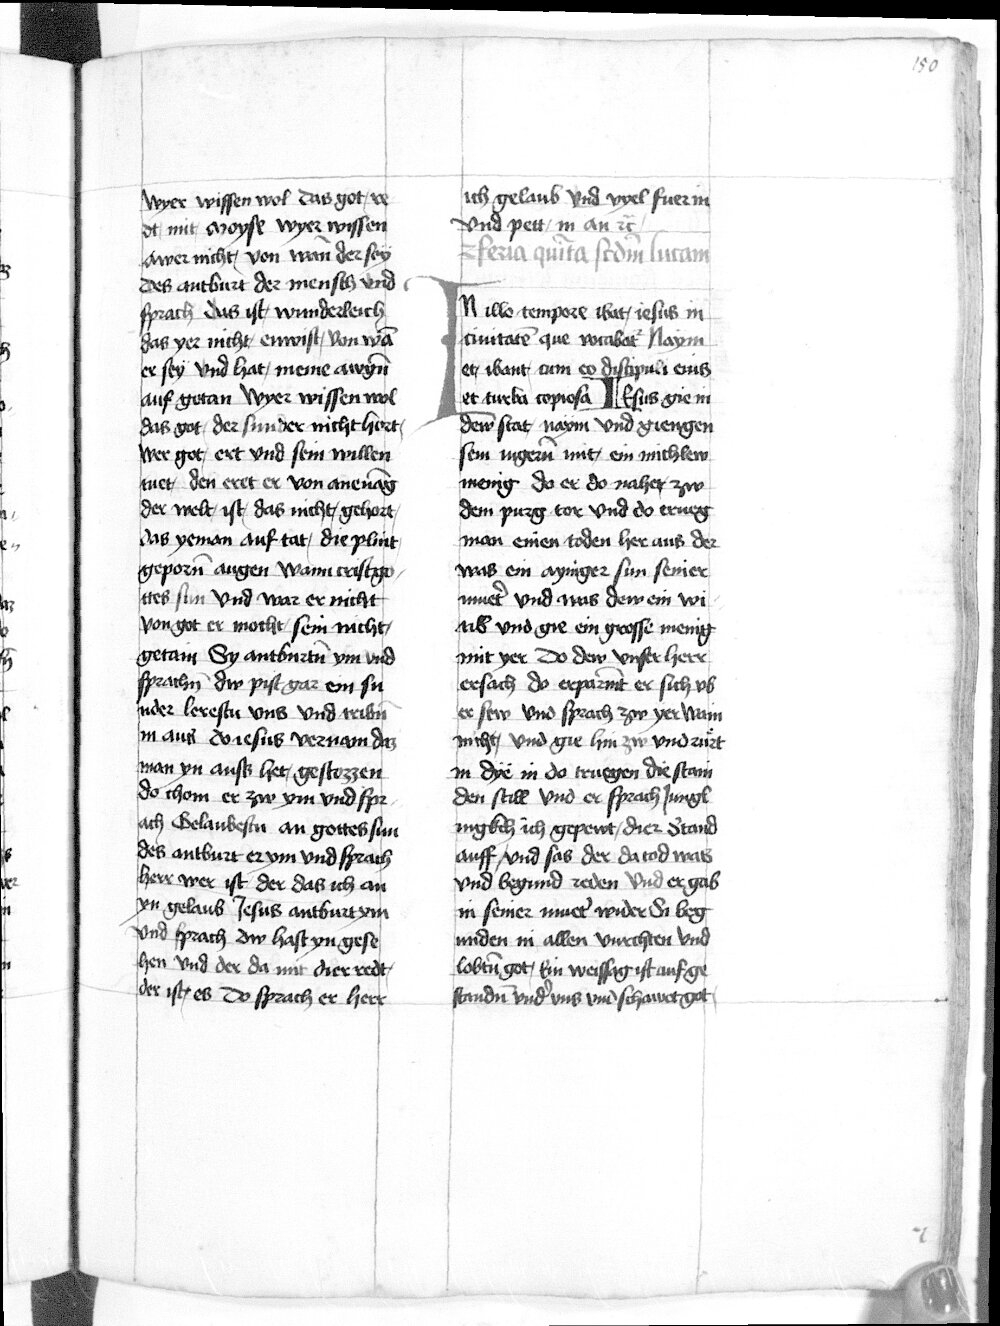 150
wyer wissen wol das got re
dt mit moyse wyer wissen
awer nicht von wan̄ der sey
des antburt der mensch vnd
sprach das ist wunderleich
das yer nicht enwist von wā
er sey vnd hat meine awgn̄
auf getan Wyer wissen wol
das got der sunder nicht hort
wer got ert vnd sein willen
tuet den eret er von anenāg
der welt ist das nicht gehort
das yeman auf tat die plint
geporn̄ augen Wann crist go
ttes sun vnd war er nicht
von got er mocht sein nicht
getain Sy antburtn̄ ym vnd
sprachn̄ dw pist gar ein su
nder lerestu vns vnd tribn̄
in aus Do iesus vernam daz
man yn auss het gestozzen
do chom er zw ym vnd spr
ach Gelaubestu an gottes sun
des antburt er ym vnd sprach
herr wer ist der das ich an
yn gelaub Jesus antburt ym
vnd sprach dw hast yn gese
hen vnd der da mit dier redt
der ist es Do sprach er herr
ich gelaub vnd vyel fuer in
vnd pett in an rc̄
feria quīta scdm̄ lucam
IN illo tempore ibat iesus in
ciuitatē que vocabat᷑ Naym
et ibant cum eo discipuli eius
et turba copiosa IEsus gie in
dew stat naym vnd giengen
sein iugern̄ mit ein michlew
menig do er do nahet zw
dem purg tor vnd do trueg
man einen toden her aus der
was ein ayniger sun seiner
muet᷑ vnd was dew ein wi
tib vnd gie ein grosse menig
mit yer Do dew vnser herr
ersach do erparmt er sich vb
er sew vnd sprach zw yer Wain
nicht vnd gie hin zw vnd rürt
in dye in do truegen die stain
den still vnd er sprach Jungl
ingk ich gepewt dier Stand
auff vnd sas der da tod was
vnd begund reden vnd er gab
in seiner muet᷑ wider Si beg
unden in allen vurchten vnd
lobtn̄ got Ein weissag ist auf ge
standn̄ vnd᷑ vns vnd schawet got